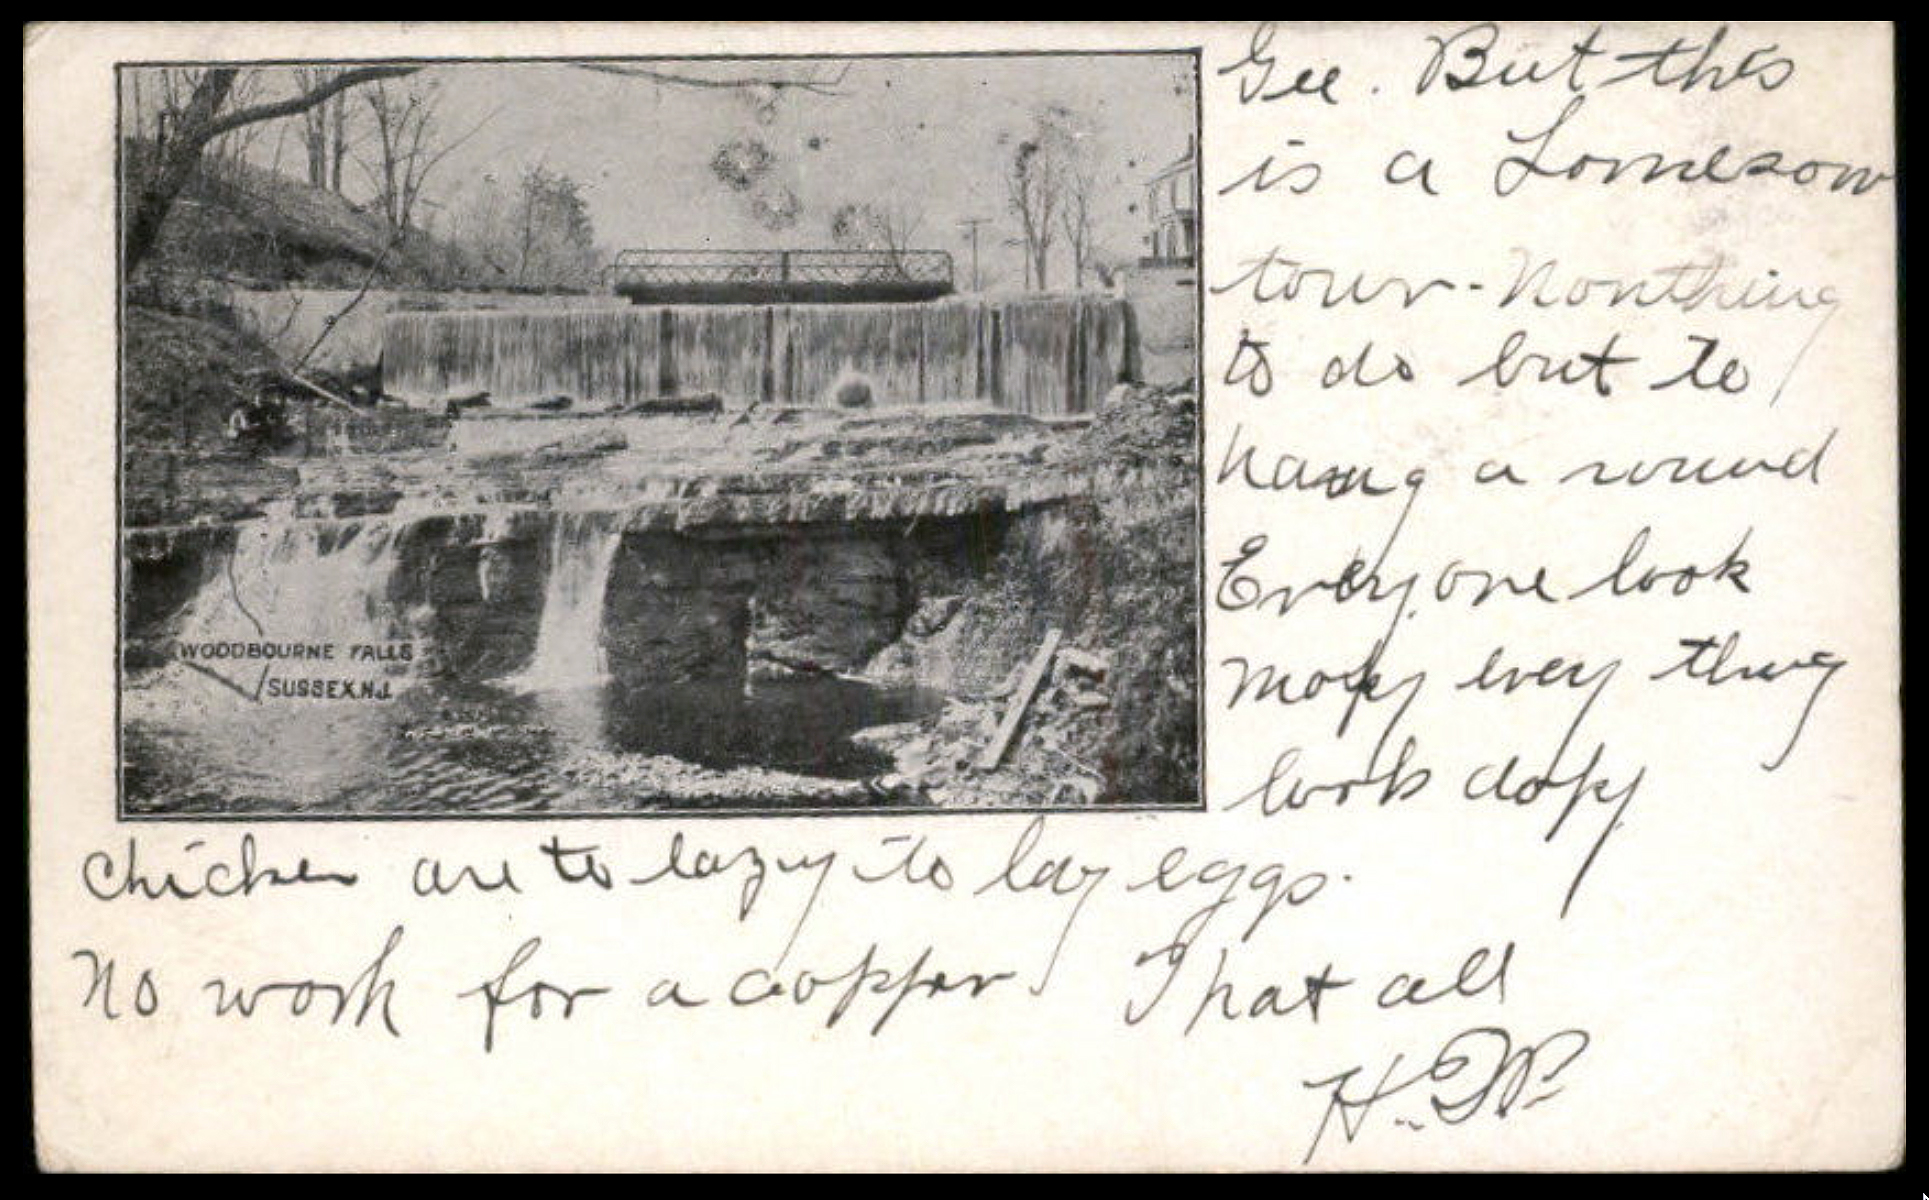 Gee. But this
is a Lonesom
town - Nonthing
to do but to
hang a round
Everyone look
mopy every thing
look dopy
chicken are to lazy to lay eggs.
No work for a copper That all
H.
WOODBOURNE FALLS
SUSSEX N.J.